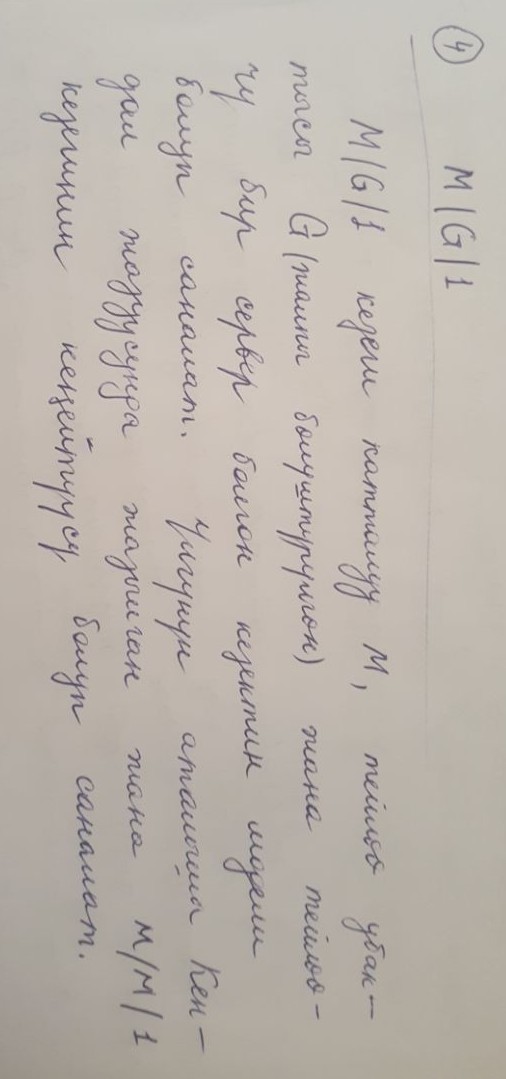 4 M/G/1
M/G/1 кезеги катталуу М, тейлөө убак-
тысы G (жалпы бөлүштүрүлгөн) жана тейлөө-
чү бир сервер болгон кезектин модели
болуп саналат. Үлгүнүн аталышы Кен-
дал жазуусунда жазылган жана М/М/1
кезегинин кеңейтүүсү болуп саналат.